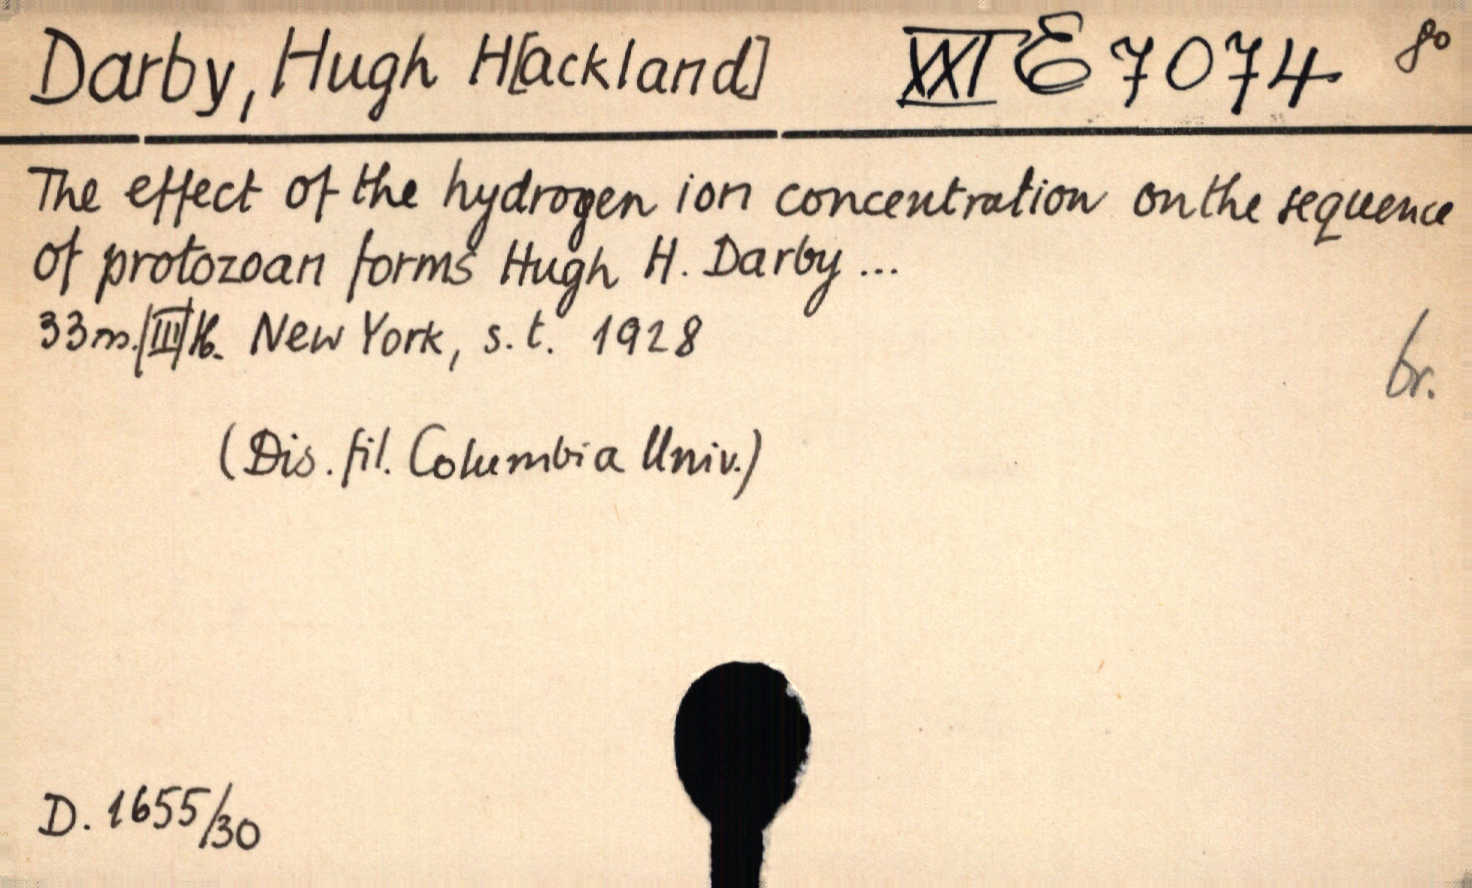 Darby, Hugh H[ackland] XXI E 7074 8°
The effect of the hydrogen ion concentration on the sequence
of protozoan forms Hugh H. Darby ...
33 New York, s. t. 1928
br.
(Dis. fil. Columbia Univ.)
D. 1655/30